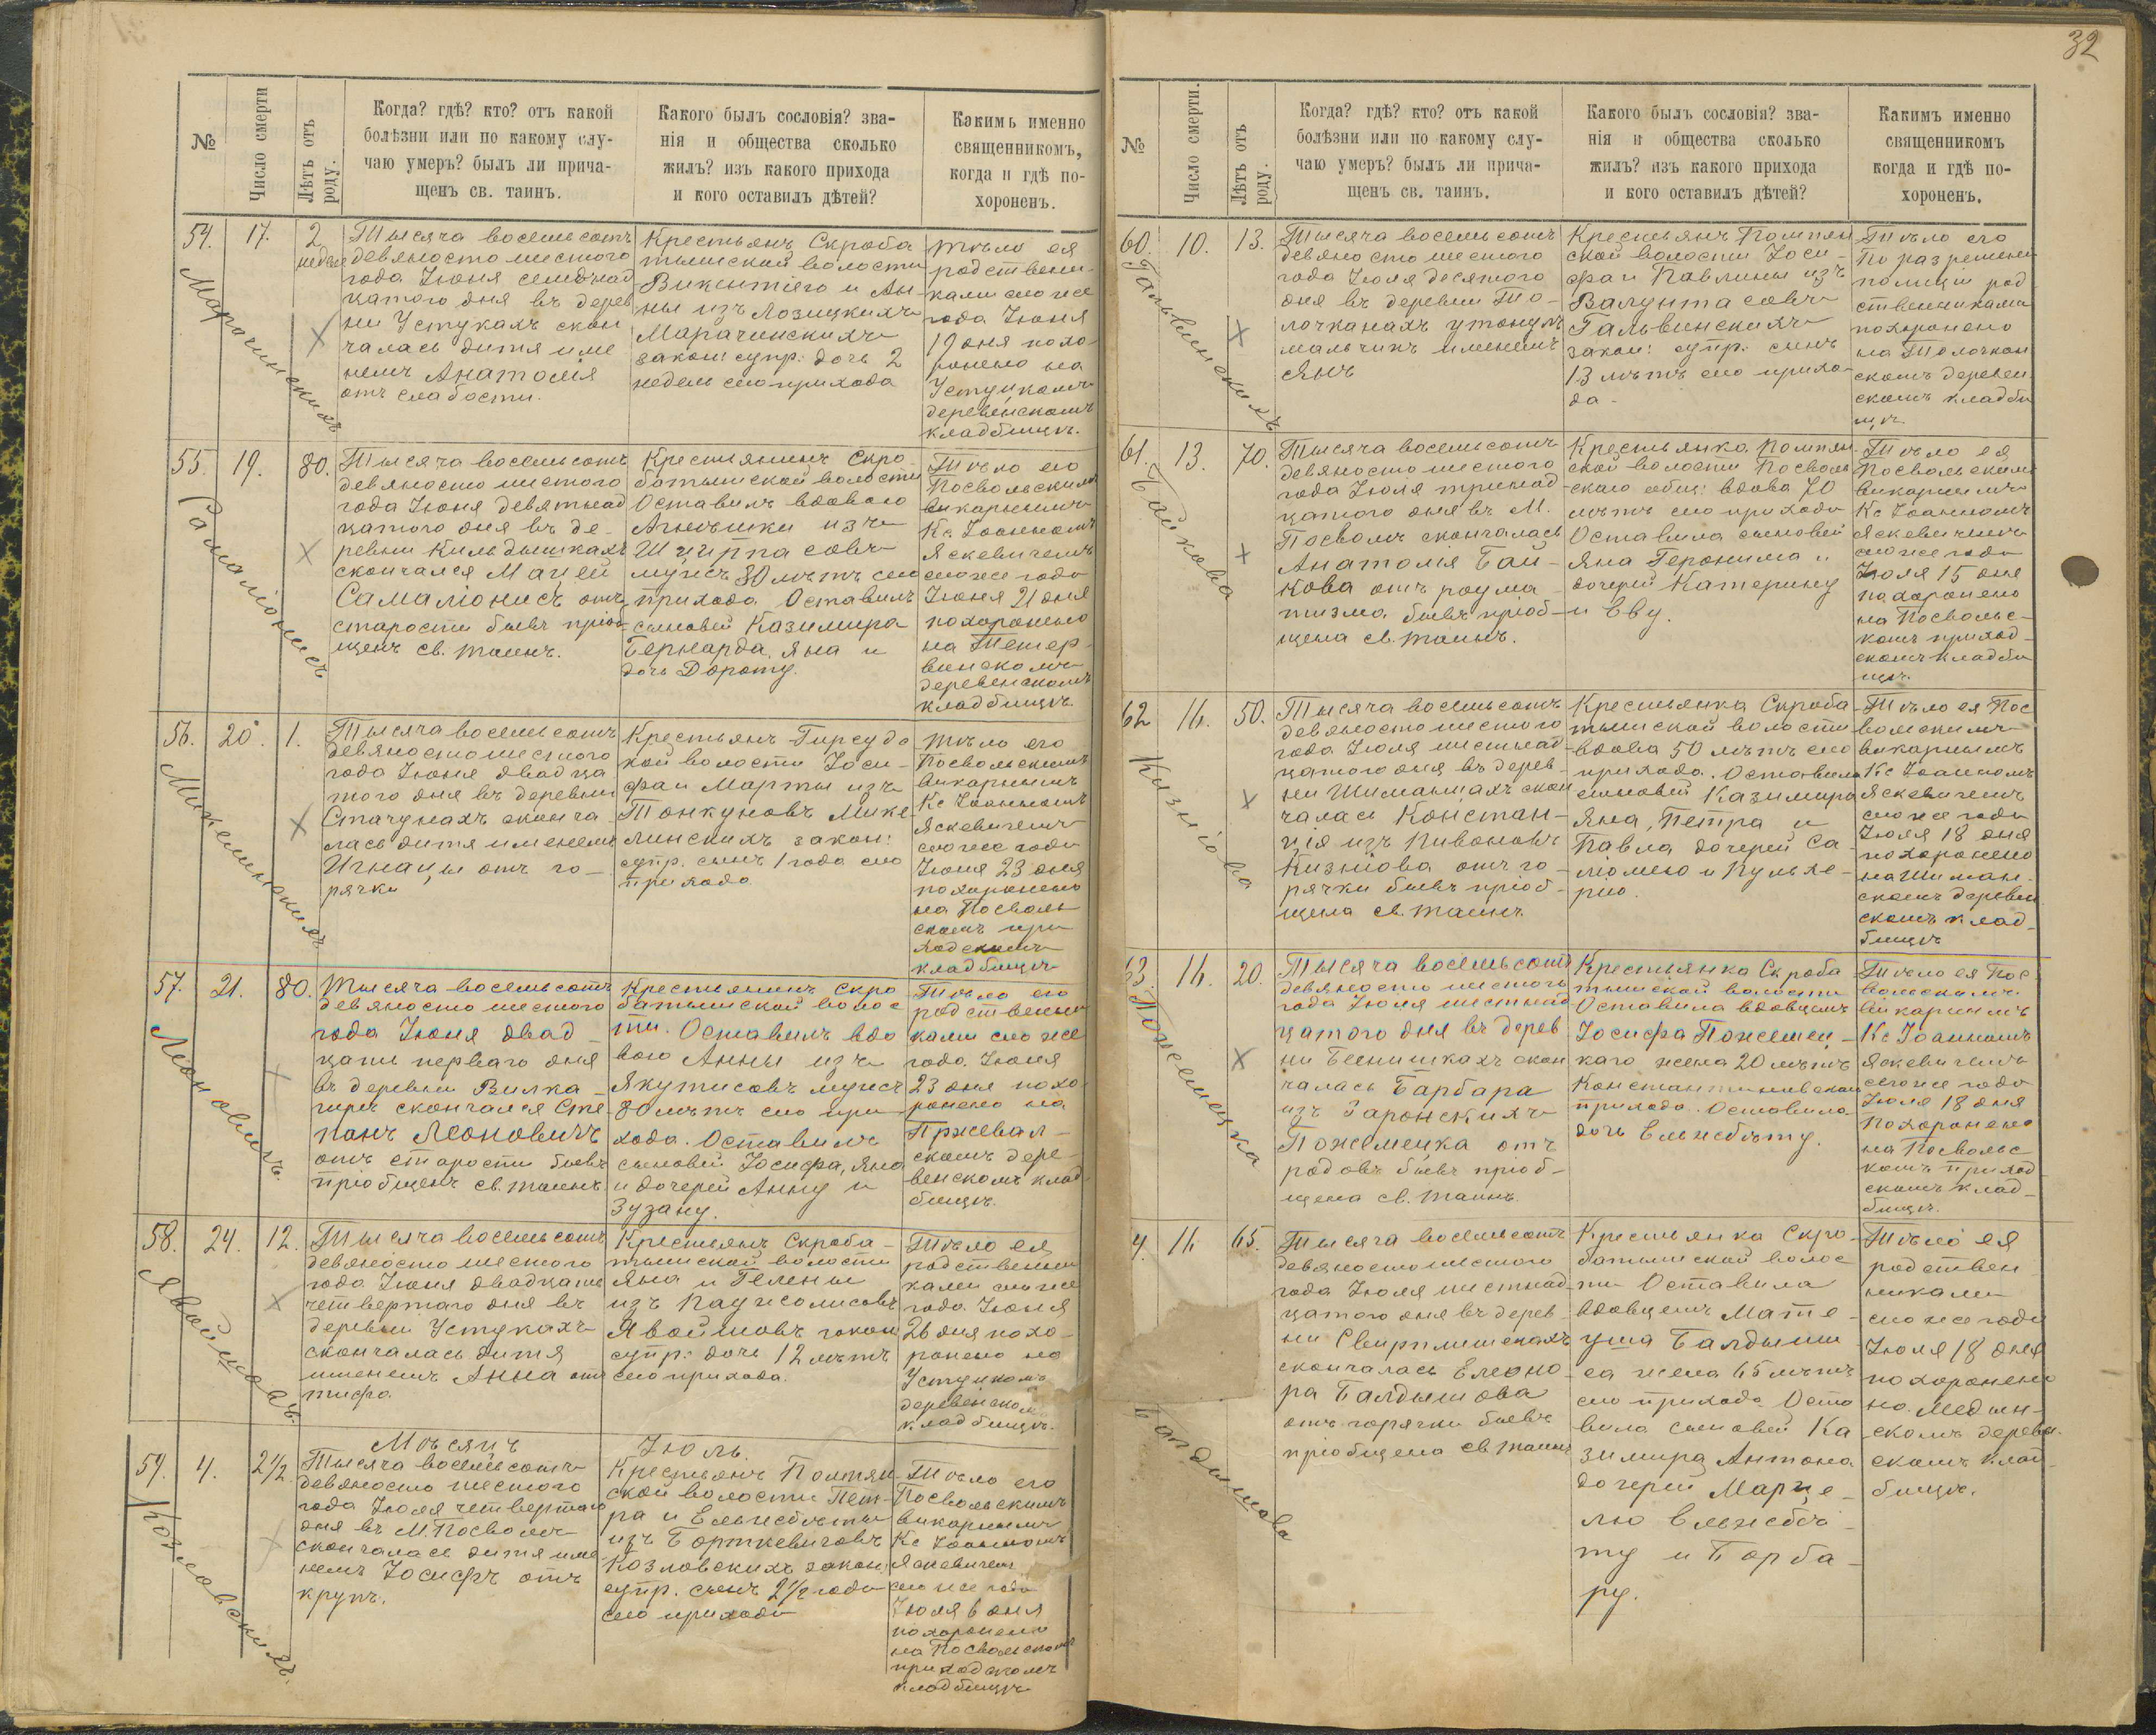 32
№
Число смерти
Лѣтъ отъ роду.
Когда? гдѣ? кто? отъ какой
болѣзни или по какому слу-
чаю умеръ? былъ ли прича-
щенъ св. таинъ.
Какого былъ сословія? зва-
нія и общества сколько
жилъ? изъ какого прихода
и кого оставилъ дѣтей?
Какимъ именно
священникомъ,
когда и гдѣ по-
хороненъ.
54.
17.
2
недел
Марачинскихъ
Тысяча восемьсотъ
девяносто шестого
года Іюня семьнад
цатого дня въ дерев
ни Устукахъ скон
чалась дитя име
немъ Анатолія
отъ слабости.
Крестьянъ Скроба
тышской волости
Викентіего и Ан-
ны изъ Лозицкихъ
Марачинскихъ
закон: супр: дочь 2
недель сего прихода
Тѣло ея
родственни-
ками сего же
года Іюня
19 дня похо-
ронено на
Устукскомъ
деревенскомъ
кладбищѣ.
55.
19.
80.
Самаліонисъ
Тысяча восемьсотъ
девяносто шестого
года Іюня девятнад
цатого дня въ де-
ревни Кильдышкахъ
скончался Мацей
Самаліонисъ отъ
старости бывъ пріоб
щенъ св. таинъ.
Крестьянинъ Скро
батышской волости
Оставилъ вдовою
Агнешки изъ
Шцыпасовъ
мужъ 80 лѣтъ сего
прихода. Оставилъ
сыновей Казимира
Бернарда, Яна и
дочь Дороту.
Тѣло его
Посвольскимъ
викарнымъ
Кс. Іоанномъ
Яскевичемъ
сего же года
Іюня 21 дня
похоронено
на Тетер-
винскомъ
деревенскомъ
кладбищѣ.
56.
20.
1.
Микелинскихъ
Тысяча восемьсотъ
девяносто шестого
года Іюня двадца
того дня въ деревни
Стачунахъ сконча
лась дитя именемъ
Игнацы отъ го-
рячки
Крестьянъ Гирсудс
кой волости Іоси-
фа и Марты изъ
Тонкуновъ Мике
линскихъ закон:
супр. сынъ 1 года сего
прихода
Тѣло его
Посвольскимъ
викарнымъ
Кс Іоанномъ
Яскевичемъ
сего же года
Іюня 23 дня
похоронено
на Посволь
скомъ при
ходскомъ
кладбищѣ
57.
21.
80.
Леоновичъ
Тысяча восемьсотъ
девяносто шестого
года Іюня двад-
цать перваго дня
въ деревни Вилка-
скончался Сте
панъ Леоновичъ
отъ старости бывъ
пріобщенъ св. таинъ
Крестьянинъ Скро
батышской волос
ти. Оставилъ вдо
вою Анны изъ
Якутисовъ мужъ
80 лѣтъ сего при
хода. Оставилъ
сыновей Іосифа, Яна
и дочерей Анну и
Зузану.
Тѣло его
родственни
ками сего же
года Іюня
23 дня похо-
ронено на
Пржевал-
скомъ дере-
венскомъ клад-
бищѣ.
58.
24.
12.
Явойшовъ.
Тысяча восемьсотъ
девяносто шестого
года Іюня двадцать
четвертаго дня въ
деревни Устукахъ
скончалась дитя
именемъ Анна отъ
тифа.
Крестьянъ Скроба-
тышской волости
Яна и Гелены
изъ Паужолисовъ
Явойшовъ закон
супр: дочь 12 лѣтъ
сего прихода.
Тѣло ея
родственни
ками сего же
года Іюня
26 дня похо-
ронено на
Устукскомъ
деревенском
кладбищѣ.
Мѣсяцъ Іюль.
59.
4.
2½.
Козловскихъ.
Тысяча восемьсотъ
девяносто шестого
года Іюля четвертаго
дня въ М. Посволѣ
скончалась дитя име
немъ Іосифъ отъ
крупъ.
Крестьянъ Помпян
ской волости Пет-
ра и Ельжбѣты
изъ Борткевичовъ
Козловскихъ закон
супр. сынъ 2½ года
сего прихода
Тѣло его
Посвольскимъ
викарнымъ
Кс Іоанномъ
Яскевичем
сего же года
Іюля 6 дня
похоронено
на Посвольском
приходскомъ
кладбищѣ
№
Число смерти.
Лѣтъ отъ роду.
Когда? гдѣ? кто? отъ какой
болѣзни или по какому слу-
чаю умеръ? былъ ли прича-
щенъ св. таинъ.
Какого былъ сословія? зва-
нія и общества сколько
жилъ? изъ какого прихода
и кого оставилъ дѣтей?
Какимъ именно
священникомъ
когда и гдѣ по-
хороненъ.
60.
10.
13.
Гальвинскихъ
Тысяча восемьсотъ
девяносто шестого
года Іюля десятого
дня въ деревни То-
лочканахъ утонулъ
мальчикъ именемъ
Янъ
Крестьянъ Помпян
ской волости Іоси-
фа и Павлины изъ
Валунтасовъ
Гальвинскихъ
закон: супр: сынъ
13 лѣтъ сего прихо-
да-
Тѣло его
По разрешени
полиціи род
ственниками
похоронено
на Толочкон
скомъ деревен
скомъ кладби
щѣ.
61.
13.
70.
Байкова
Тысяча восемьсотъ
девяносто шестого
года Іюля тринад-
цатого дня въ М.
Посволѣ скончалась
Анатолія Бай-
кова отъ роума
тизма бывъ пріоб-
щена св. таинъ.
Крестьянка Помпян
ской волости Посволь
скаго общ: вдова 70
лѣтъ сего прихода
Оставила сыновей
Яна Геронима и
дочерей Катерину
и Еву.
Тѣло ея
Посвольским
викарнымъ
Кс Іоанномъ
Яскевичемъ
сего же года
Іюля 15 дня
похоронено
на Посвольс-
комъ приход-
скомъ кладби
щѣ.
62
16.
50.
Кизніова
Тысяча восемьсотъ
девяносто шестого
года Іюля шестнад-
цатого дня въ дерев-
ни Шиманцахъ скон
чалась Констан-
ція изъ Пивоновъ
Кизніова отъ го-
рячки бывъ пріоб-
щена св. таинъ
Крестьянка Скроба
тышской волости
вдова 50 лѣтъ сего
прихода. Оставила
сыновей Казимира
Яна, Петра и
Павла дочерей Са-
ломею и Пульхе-
рію.
Тѣло ея Пос
вольскимъ
викарнымъ
Кс Іоанномъ
Яскевичемъ
сего же года
Іюля 18 дня
похоронено
на Шиман-
скомъ деревен
скомъ клад-
бищѣ
63.
16.
20.
Пожемецка
Тысяча восемьсотъ
девяносто шестого
года Іюля шестнад
цатого дня въ дерев
ни Бенишкахъ скон
чалась Барбара
изъ Гаронскихъ
Пожемецка отъ
родовъ бывъ пріоб-
щена св. таинъ.
Крестьянка Скроба
тышской волости
Оставила вдовцемъ
Іосифа Пожемец-
каго жена 20 лѣтъ
Константиновском
прихода. Оставила
дочь Ельжбѣту.
Тѣло ея Пос
вольскимъ
викарнымъ
Кс Іоанномъ
Яскевичемъ
сего же года
Іюля 18 дня
Похоронено
на Посвольс
комъ приход
скомъ клад-
бищѣ.
4.
16
65.
Балдышова
Тысяча восемьсотъ
девяносто шестого
года Іюля шестнад
цатого дня въ дерев-
ни Свирплишкахъ
скончалась Елеоно-
ра Балдышова
отъ горячки бывъ
пріобщена св таинъ
Крестьянка Скро-
батышской волос
ти Оставила
вдовцемъ Мате-
уша Балдыши
са жена 65 лѣтъ
сего прихода Оста
вила сыновей Ка
зимира Антона
дочерей Марце-
лю Ельжбѣ-
ту и Барба-
ру.
Тѣло ея
родствен
никами
сего же года
Іюля 18 дня
похоронено
на Медын-
скомъ деревен-
скомъ клад
бищѣ.